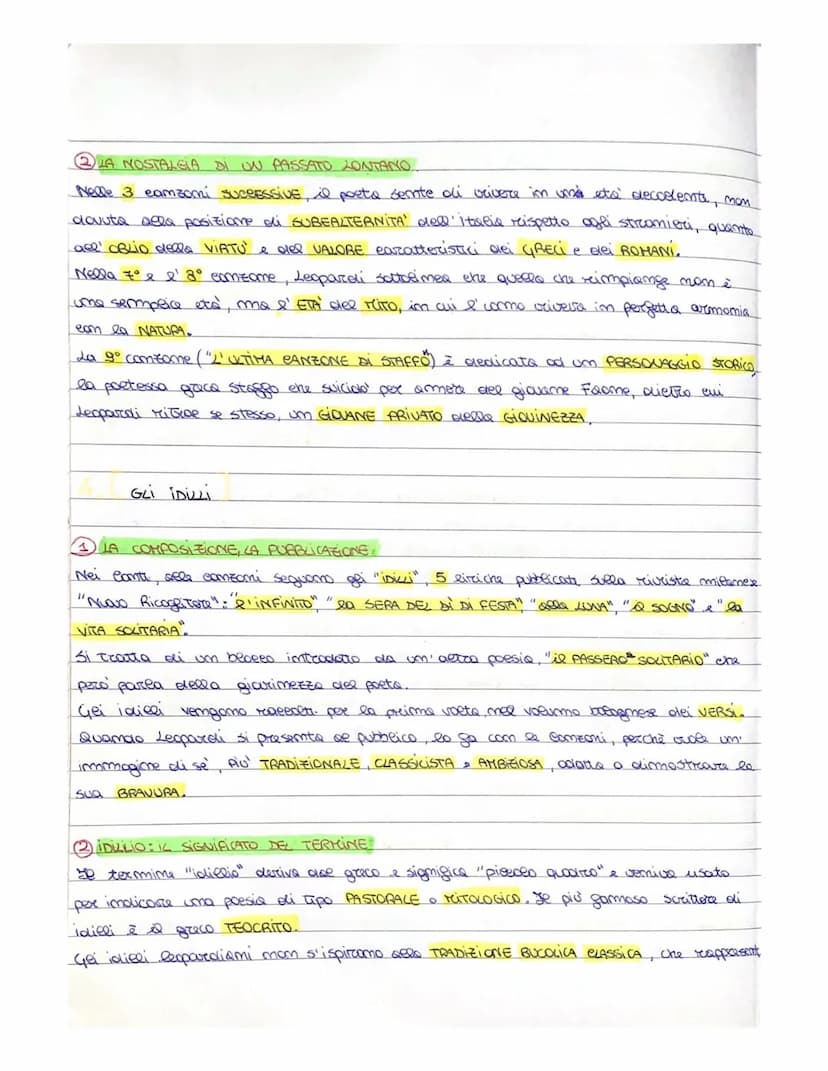 ② LA NOSTALGIA DI UN PASSATO LONTANO
Nelle 3 canzoni SUCCESSIVE, il poeta sente di vivere in una età decadente, non
dovuta alla posizione di SUBALTERNITA' dell'Italia rispetto agli stranieri, quanto
all'OBLIO della VIRTU' e del VALORE caratteristici dei GRECI e dei ROMANI.
Nella 7° e l'8° canzone, Leopardi sottolinea che quello che rimpiange non è
una semplice età, ma l'ETA' del MITO, in cui l'uomo viveva in perfetta armonia
con la NATURA.
La 9° canzone ("L'ULTIMA CANZONE DI STAFFO") è dedicata ad un PERSONAGGIO STORICO,
la poetessa greca Staffo che suicidò per amore del giovane Faone, dietro cui
Leopardi ritrae se stesso, un GIOVANE PRIVATO della GIOVINEZZA.
4. [ GLI IDILLI ]
① LA COMPOSIZIONE, LA PUBBLICAZIONE
Nei Canti, alla canzoni seguono gli "idilli", 5 liriche pubblicati sulla rivista milanese
"Nuovo Ricoglitore": "L'INFINITO", "la SERA DEL DÌ DI FESTA", "alla LUNA", "il SOGNO" e "la
VITA SOLITARIA".
Si tratta di un blocco introdotto da un'altra poesia, "il PASSERO SOLITARIO" che
però parla della giovinezza del poeta.
Gli idilli vengono raccolti per la prima volta, nel volume bolognese dei VERSI.
Quando Leopardi si presenta al pubblico, lo fa con la Canzoni, perchè vuole un'
immagine di sè, più TRADIZIONALE, CLASSICISTA e AMBIZIOSA, adatta a dimostrare la
sua BRAVURA.
② IDILLIO: IL SIGNIFICATO DEL TERMINE
Il termine "idillio" deriva dal greco e significa "piccolo quadro" e veniva usato
per indicare una poesia di tipo PASTORALE o MITOLOGICO. Il più famoso scrittore di
idilli è il greco TEOCRITO.
Gli idilli leopardiani non s'ispirano alla TRADIZIONE BUCOLICA CLASSICA, che rappresent